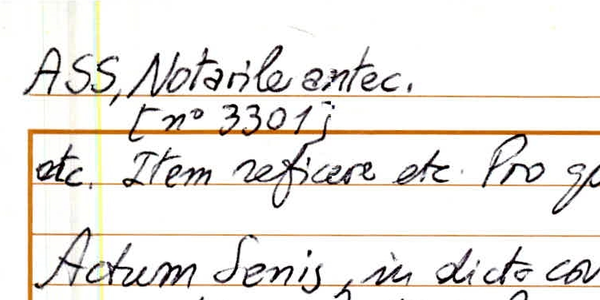 ASS, Notarile antec.
[nº 3301]
etc. Item reficere etc. Pro
Actum Senis, in dicto